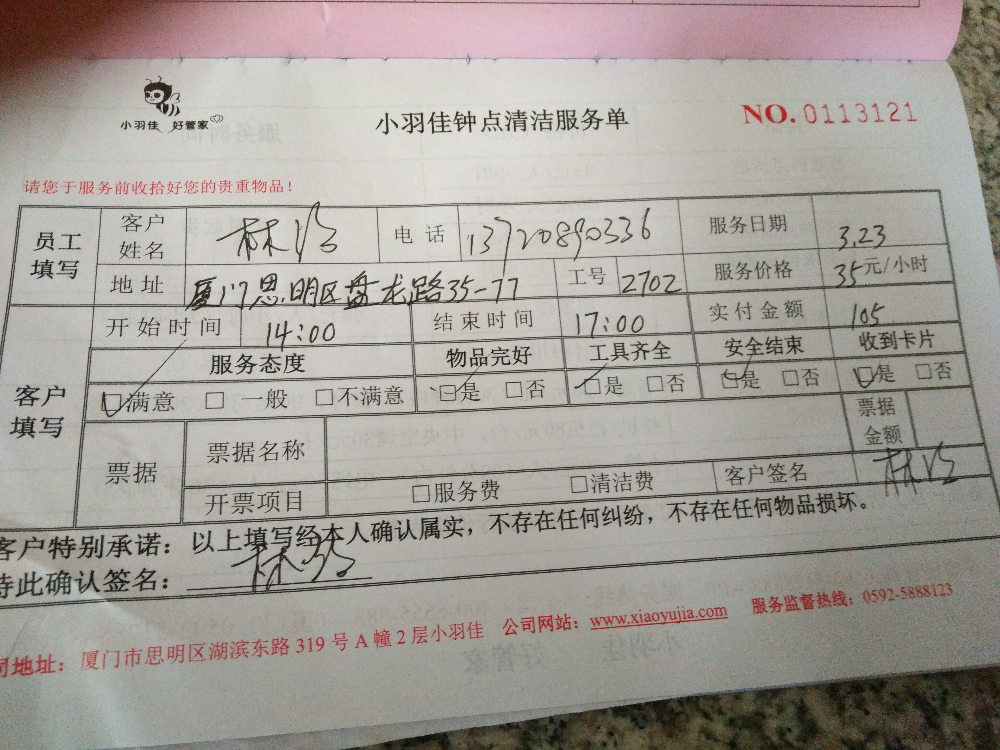 小羽佳 好管家
小羽佳钟点清洁服务单
NO. 0113121
请您于服务前收拾好您的贵重物品！
员工填写 客户姓名 林 电话 13720890336 服务日期 3.23
地址 厦门思明区盘龙路35-77 工号 2702 服务价格 35元/小时
开始时间 14:00 结束时间 17:00 实付金额 105
客户填写 服务态度 物品完好 工具齐全 安全结束 收到卡片
☑满意 □一般 □不满意 ☑是 □否 ☑是 □否 ☑是 □否 ☑是 □否
票据 票据名称 票据金额
开票项目 □服务费 □清洁费 客户签名 林
客户特别承诺：以上填写经本人确认属实，不存在任何纠纷，不存在任何物品损坏。
特此确认签名：林
司地址：厦门市思明区湖滨东路319号A幢2层小羽佳 公司网站：www.xiaoyujia.com 服务监督热线：0592-5888123